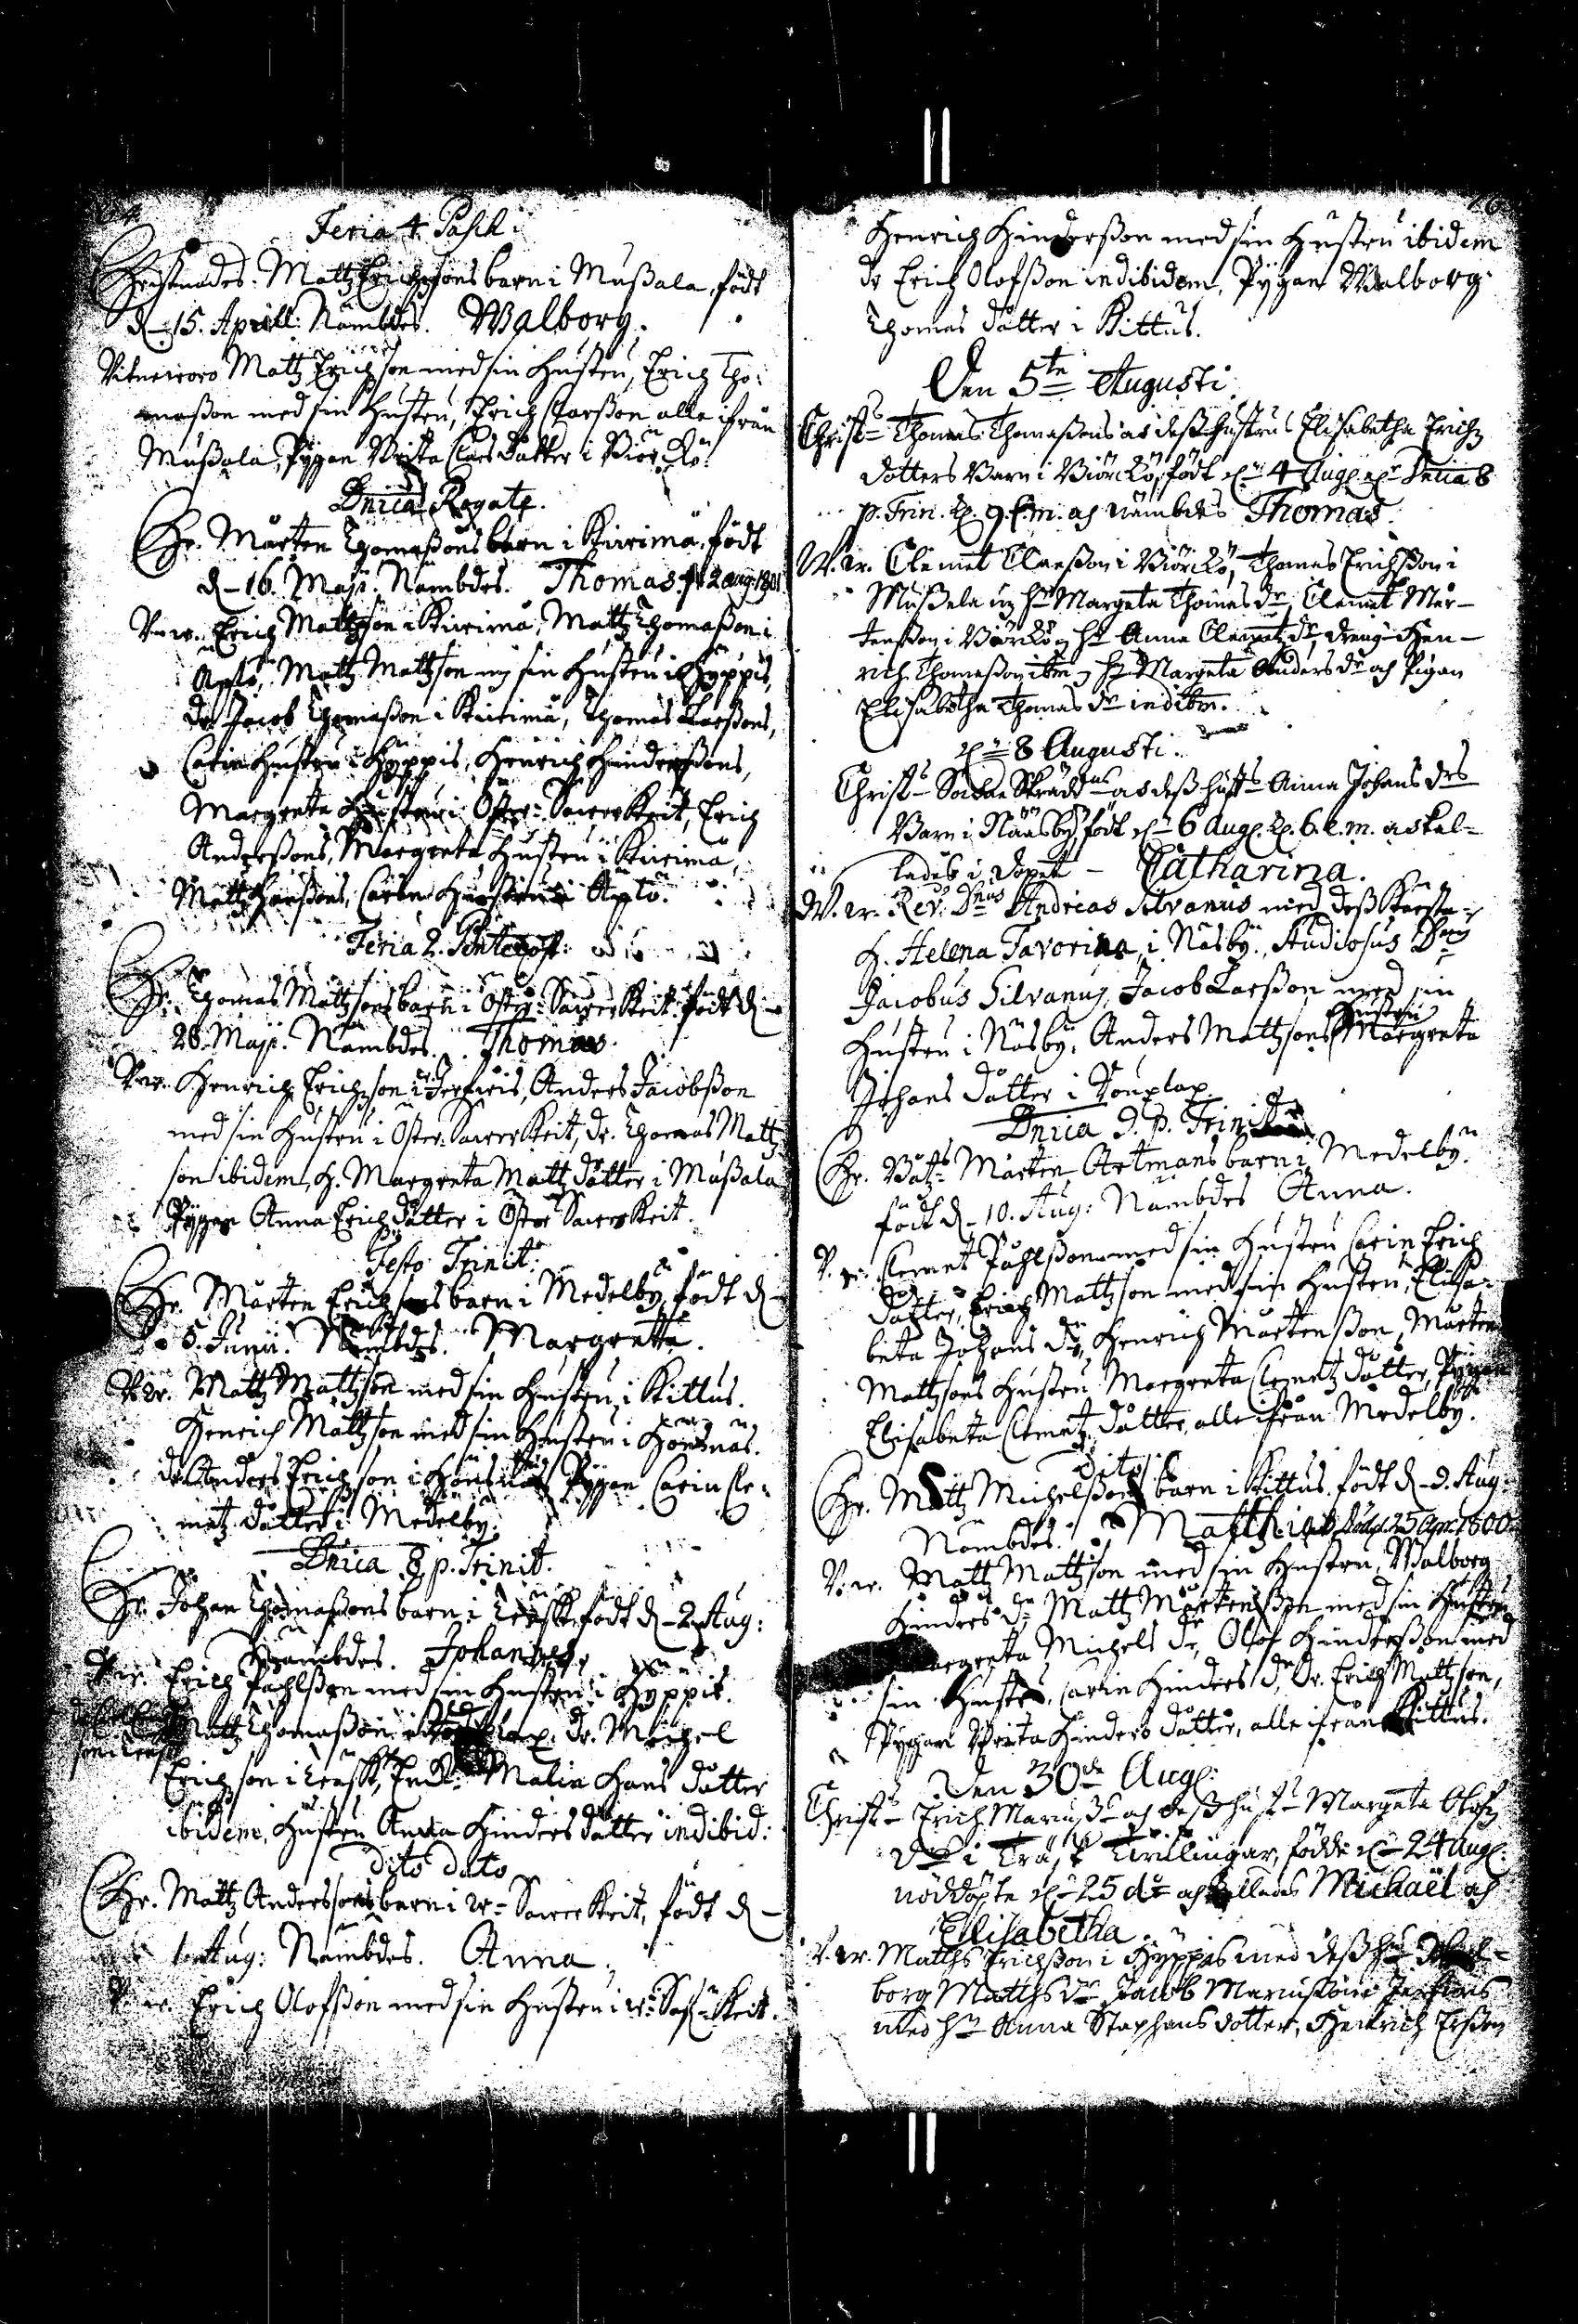 Feria 4 Pasch:
Christnades. Mattz Erichsons barn i Mußala, född
d. 15. Aprill: Nämbdes. Walborg.
Vitne woro Mattz Erichson med sin Hustru, Erich Tho:
maßon med sin Hustru, Erich Clarßon alle ifrån
Mußala, Pygan Brita Claes datter i Biör Kö.
Dnica Rogate.
Chr. Mårten Thomaßons barn i Kurima, född
d. 16. Maji. Nambdes. Thomas.
V. w. Erich Mattzson i Kurima, Mattz Thomaßon i
Aplö, Mattz Mattzson m sin Hustru i Hyppis,
dr Jacob Thomaßon i Kurima, Thomas Larßons,
Carin Hustru i Hyppis, Henrich Hinderßons,
Margreta Hustru i Öster: Sawerkeit, Erich
Anderßons, Margreta Hustru i Kurima,
Mattz Hanßons, Carin Hustru i Aplö.
Feria 2. Pentecost:
Chr. Thomas Mattzsons barn i Öster: Sawerkeit. född d.
28. Maji. Nambdes. Thomas.
V. w. Henrich Erichson i Jerfwis, Anders Jacobßon
med sin Hustru i Öster: Sawerkeit, dr. Thomas Mattz
son ibidem, H. Margreta Mattz dåtter i Mußala
Pygan Anna Erichs dåtter i Öster Sawerkeit.
Festo Trinit:
Chr. Mårten Erichsons barn i Medelby, född d.
5. Junii. Nambdes. Margretta.
V. w. Mattz Mattzson med sin Hustru i Kittus.
Henrich Mattzson med sin Hustru i Hönsnäs.
dr Anders Erichson i Hönsnäs Pygan Carin Cle:
metz dåtter i Medelby.
Dnica 8 p. Trinit.
Chr. Johan Thomaßons barn i Träsk född d. 2 Aug:
Nambdes. Johannes
V. w. Erich Påhlßon med sin Hustru i Hyppis.
Mattz Thomaßon i dr. Michel
Erichson i Träsk, Malin Hans dåtter
ibidem, Hustru Anna Hinders dåtter indibid:
dito dato
Chr. Mattz Anderssons barn i W: Sawerkeit, född d.
1 Aug: Nambdes. Anna.
V. w. Erich Olofßon med sin Hustru i W: Sawerkeit.
Henrich Hinderßon med sin Hustru ibidem
dr Erich Olofßon indibidem, Pygan Walborg
Thomas dåtter i Kittus.
Den 5te Augusti
Christs Thomas Thomaßons as deß hustrus Elisabetha Erichz
dotters Barn i Biörckö, född 4 Aug. Dnica 8
p. Trin. kl 9 f.m. och nämbdes Thomas.
W. w. Clemet Claeßon i Biörckö, Thomas Erichßon i
Mußala m hu Margeta Thomes dr, Clemet Mår-
tenßon i Biörckö m hu Anna Clemetz dr, dreng Hen-
rich Thomeßon ibm, hu Margeta Anders dr och Pigan
Elisabetha Thomas dr in ibm.
8 Augusti.
Christs Sochne Skräddns as deß huss Anna Johans drs
Barn i Näsby född 6 Aug. kl. 6. e.m. as kal-
lades i dopet - Catharina.
W. w. Rev. Dnus Andreas Silvanus med deß Käresta
H. Helena Favorina i Näsby. Studiosus Dnus
Jacobus Silvanus, Jacob Larßon med sin
Hustru i Näsby, Anders Mattzsons Hustru Margreta
Johans dåtter i
Dnica 9. p. Trinit
Chr. Båtz: Mårten Artmans barn i Medelby.
född d. 10. Aug: Nambdes Anna.
V. w. Clemet Påhlßon med sin Hustru Carin Erich
dåtter, Erich Mattzson med sin Hustru, Elisa-
beta Johans dr, Henrich Mårtenßon, Mårten
Mattzsons Hustru Margreta Clemetz dåtter, Pygan
Elisabeta Clemetz dåtter, alle ifrån Medelby.
dito
Chr. Mattz Michelßons barn i Kittus. född d. 9. Aug:
Nambdes. Matthias
V. w. Mattz Mattzson med sin Hustru, Walborg
Hinders dr Mattz Mårtenßon med sin Hustru
Margreta Michels dr, Olof Hinderßon med
sin Hustru Carin Hinders dr, Dr. Erich Mattzson,
Pygan Brita Hinders dåtter, alle ifrån Kittus.
Den 30de Aug.
Christs Erich Mariuß och deß hust. Margeta Olofz
dr i Träsk Twillingar, födde 24 Aug.
nöddöpte 25 dr och kallades Michaël och
Elisabetha
V. w. Matths Erichßon i Hyppis med deß hu Wal-
borg Matths dr, Jacob Marcuson i Jerfwis
med hu Anna Staphans dotter, Henrich Erßon